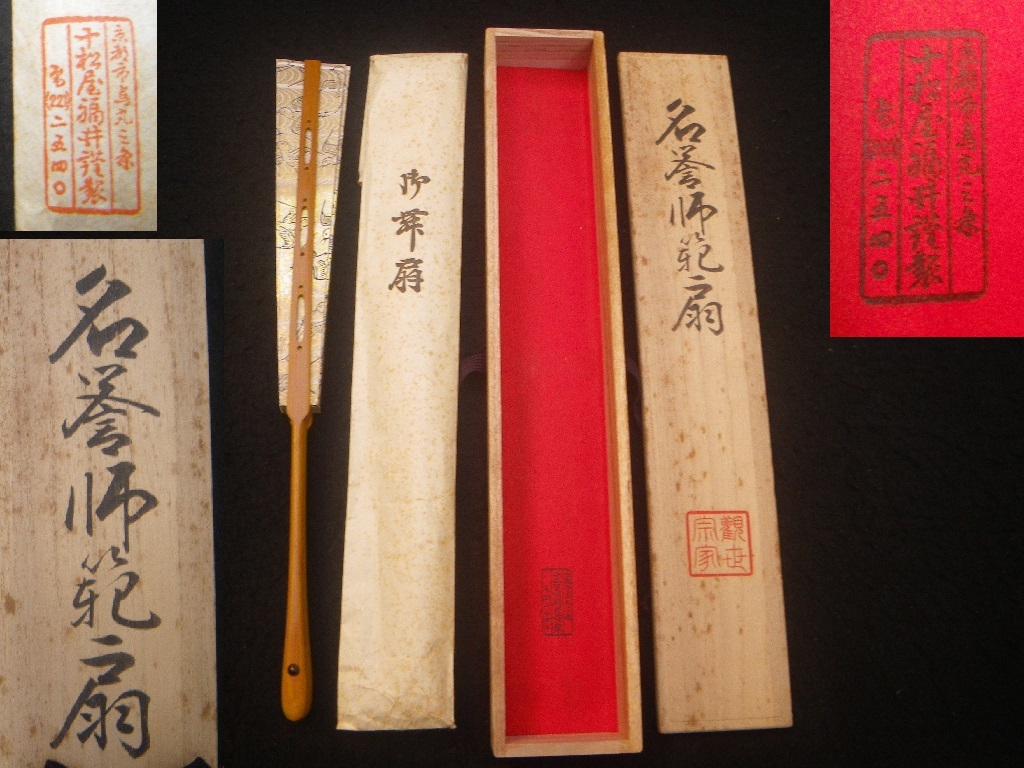 京都市烏丸三条
十松屋福井謹製
電(221)二五四〇
名誉師範之扇
御舞扇
名誉師範之扇
觀世
宗家
京都市烏丸三条
十松屋福井謹製
電(221)二五四〇